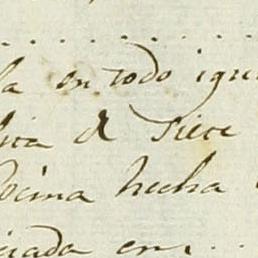 la en todo igu
lica d Siete
ocina hecha
ciada en